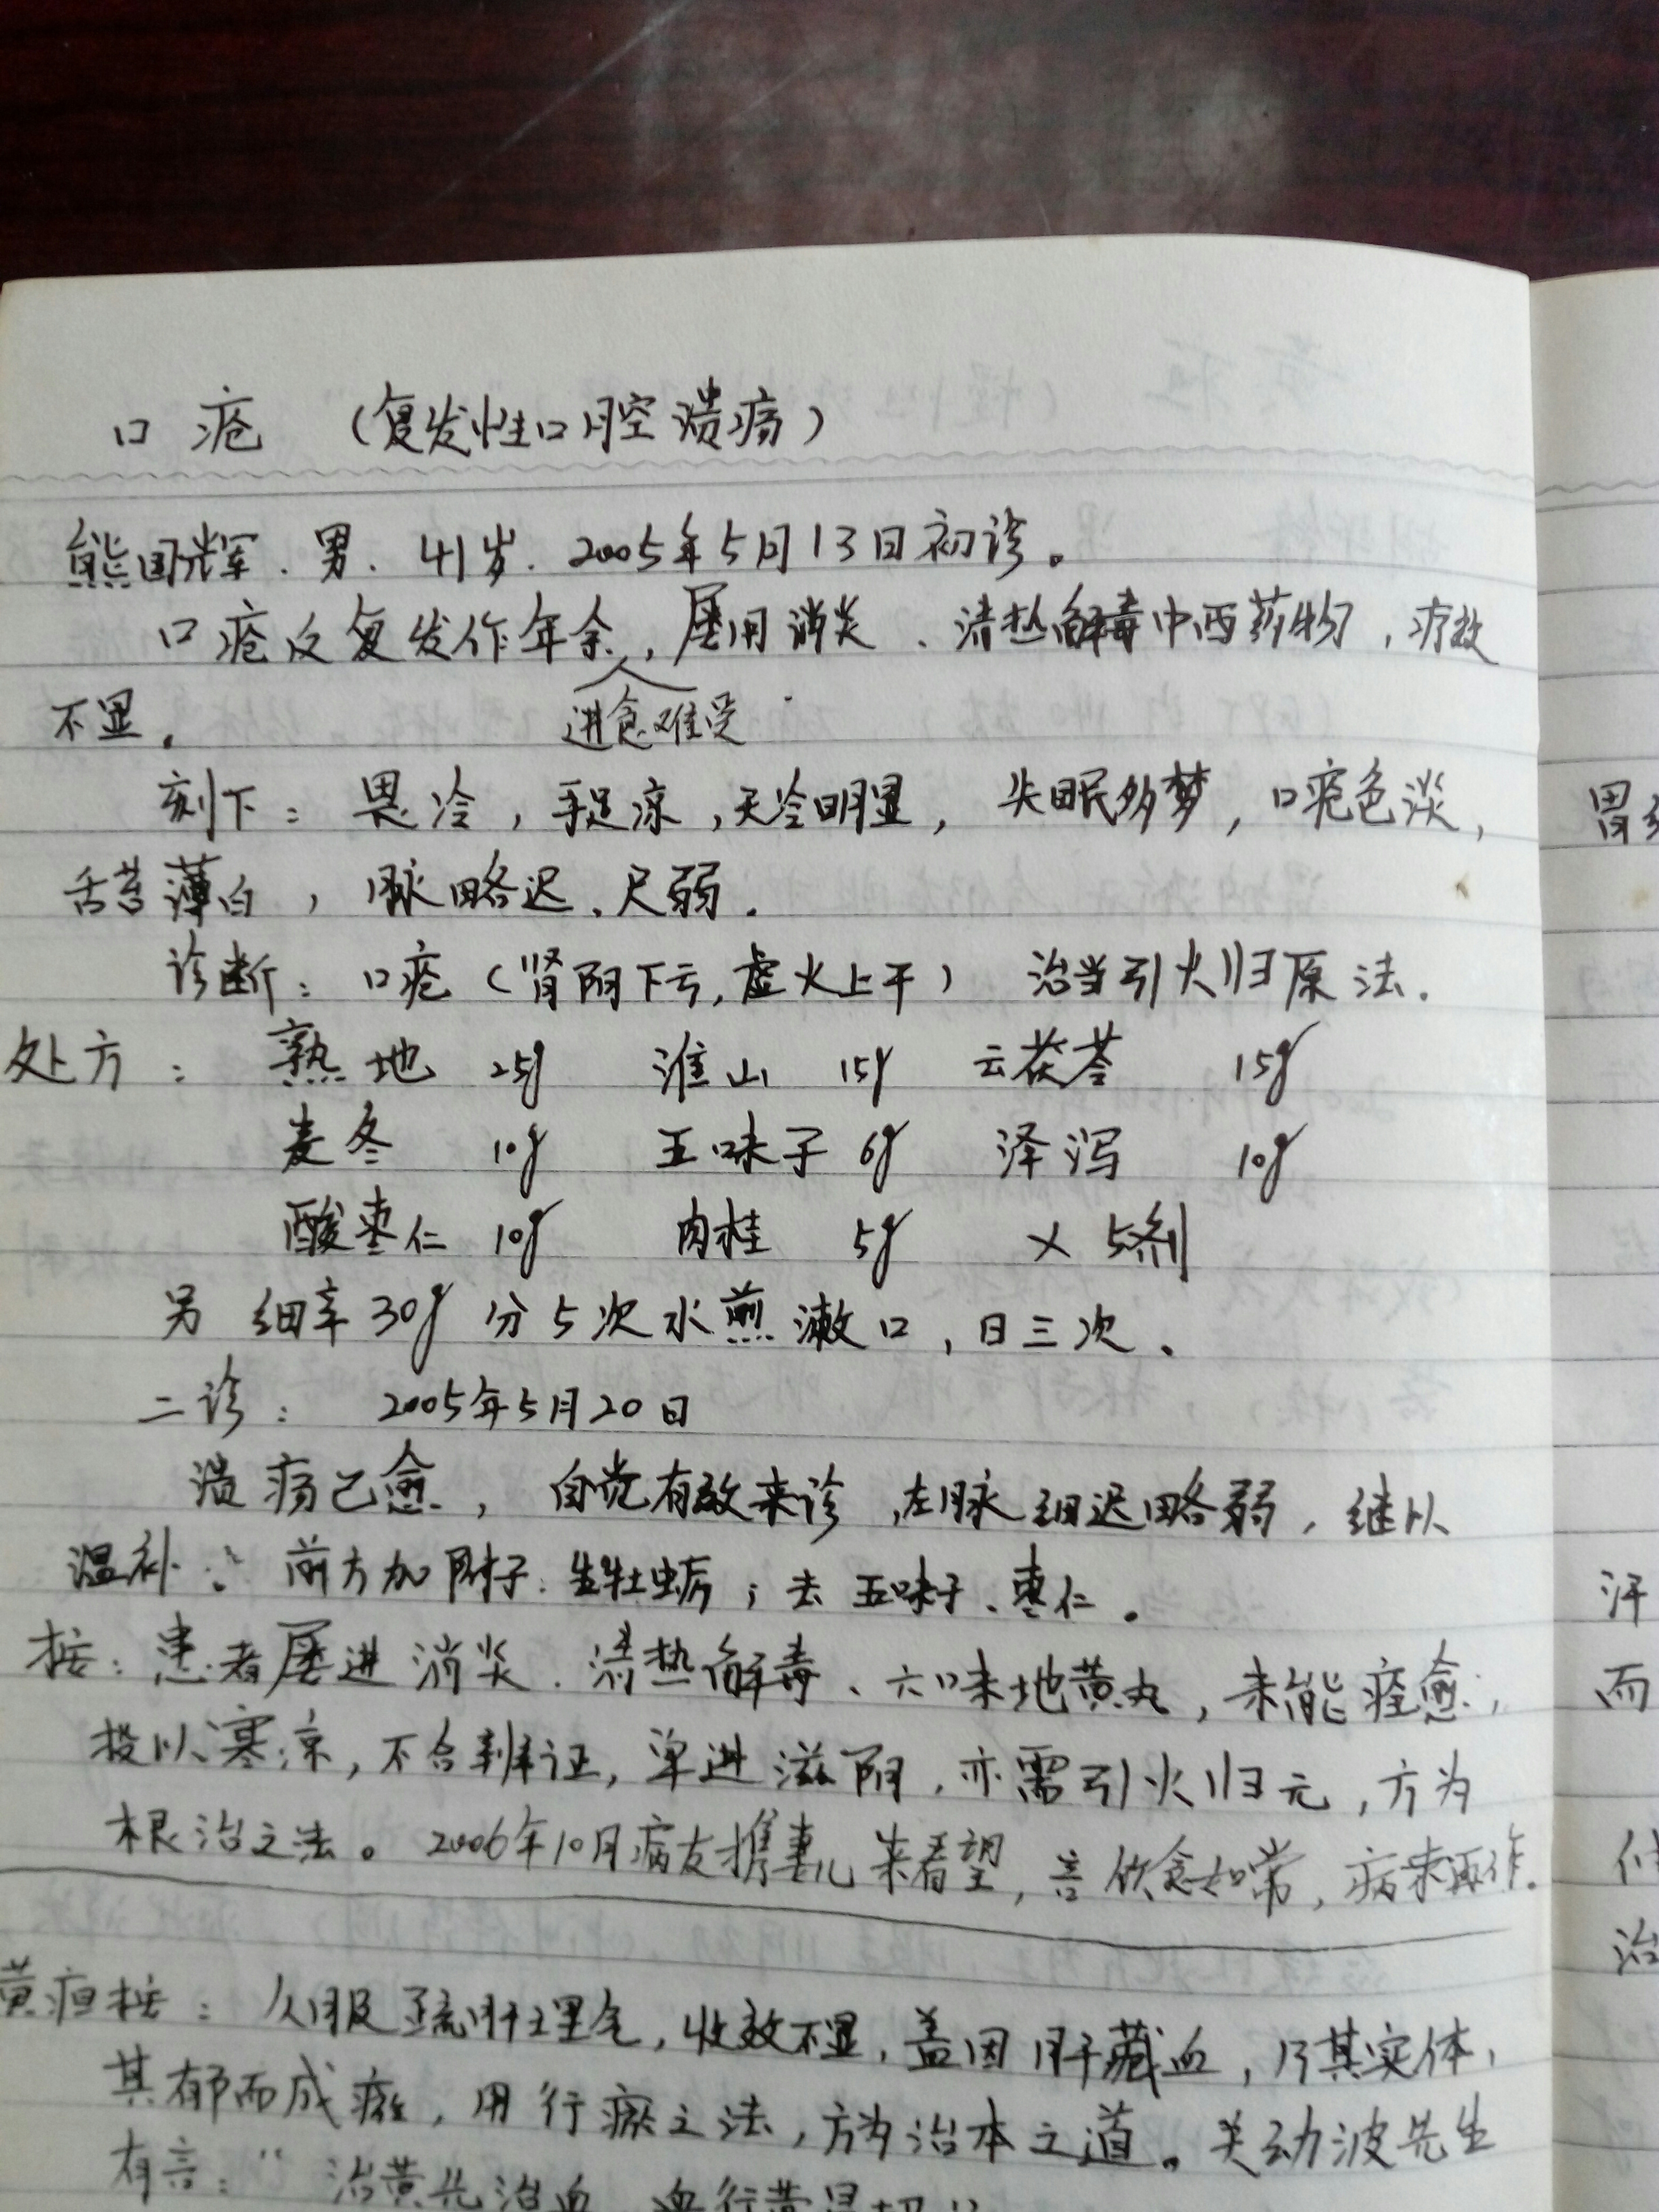 口疮 （复发性口腔溃疡）
熊国辉．男．41岁．2005年5月13日初诊。
口疮反复发作年余，屡用消炎、清热解毒中西药物，疗效
进食难受
不显。
刻下：畏冷，手足凉，天冷明显，失眠多梦，口疮色淡，
舌苔薄白，脉略迟、尺弱．
诊断：口疮（肾阴下亏，虚火上干） 治当引火归原法．
处方：熟地 25g 淮山 15g 云茯苓 15g
麦冬 10g 五味子 6g 泽泻 10g
酸枣仁 10g 肉桂 5g × 5剂
另 细辛30g 分5次水煎漱口，日三次．
二诊：2005年5月20日
溃疡已愈，自觉有效来诊，左脉细迟略弱，继以
温补．前方加附子．生牡蛎；去五味子、枣仁．
按：患者屡进消炎．清热解毒、六味地黄丸，未能痊愈，
投以寒凉，不合辨证，单进滋阴，亦需引火归元，方为
根治之法。2006年10月病友携妻儿来看望，言饮食如常，病未再作．
黄疸按：久服疏肝理气，收效不显，盖因肝藏血，乃其实体，
其郁而成瘀，用行瘀之法，方为治本之道。关幼波先生
有言：“治黄先治血
胃
汗
而
治